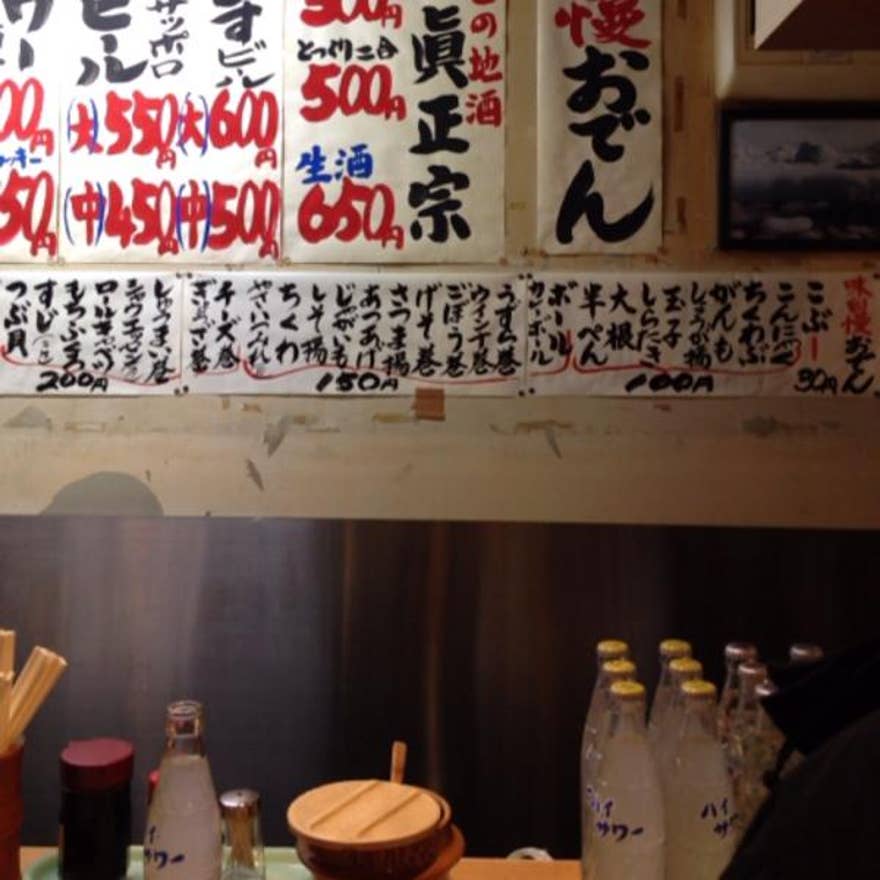 慢おでん
の地酒
眞正宗
500円
とっくり二合
500円
生酒
650円
ビール
(大)600円
(中)500円
サッポロ
ビール
(大)550円
(中)450円
ワー
00円
50円
味自慢おでん
こぶー
30円
こんにゃく
ちくわぶ
がんも
しょうが揚
玉子
しらたき
大根
半ぺん
100円
ボール
カレーボール
うずら巻
ウインナ巻
ごぼう巻
げそ巻
さつま揚
あつあげ
じゃがいも
しそ揚
ちくわ
やさいつみれ
150円
チーズ巻
ぎょうざ巻
しゅうまい巻
シャウエッセン巻
ロールキャベツ
もちぶくろ
すじ
つぶ貝
200円
ハイ
サワー
ハイ
サワー
ハイ
サワ